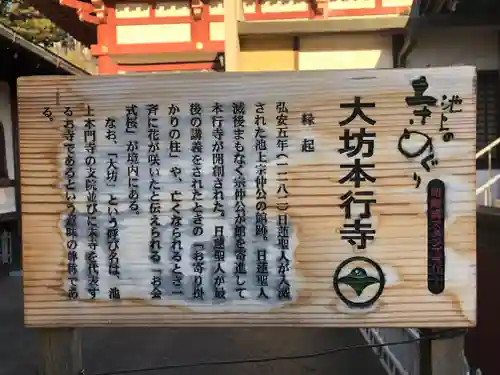 池上の
寺めぐり
大坊本行寺
縁起
弘安五年(一二八二)日蓮聖人が入滅
された池上宗仲公の館跡。日蓮聖人入
滅後まもなく宗仲公が館を寄進して
本行寺が開創された。日蓮聖人が最
後の講義をされたときの「お寄り掛
かりの柱」や、亡くなられるとき一
斉に花が咲いたと伝えられる「お会
式桜」が境内にある。
なお、「大坊」という呼び名は、池
上本門寺の支院並びに末寺を代表す
るお寺であるという意味の尊称であ
る。